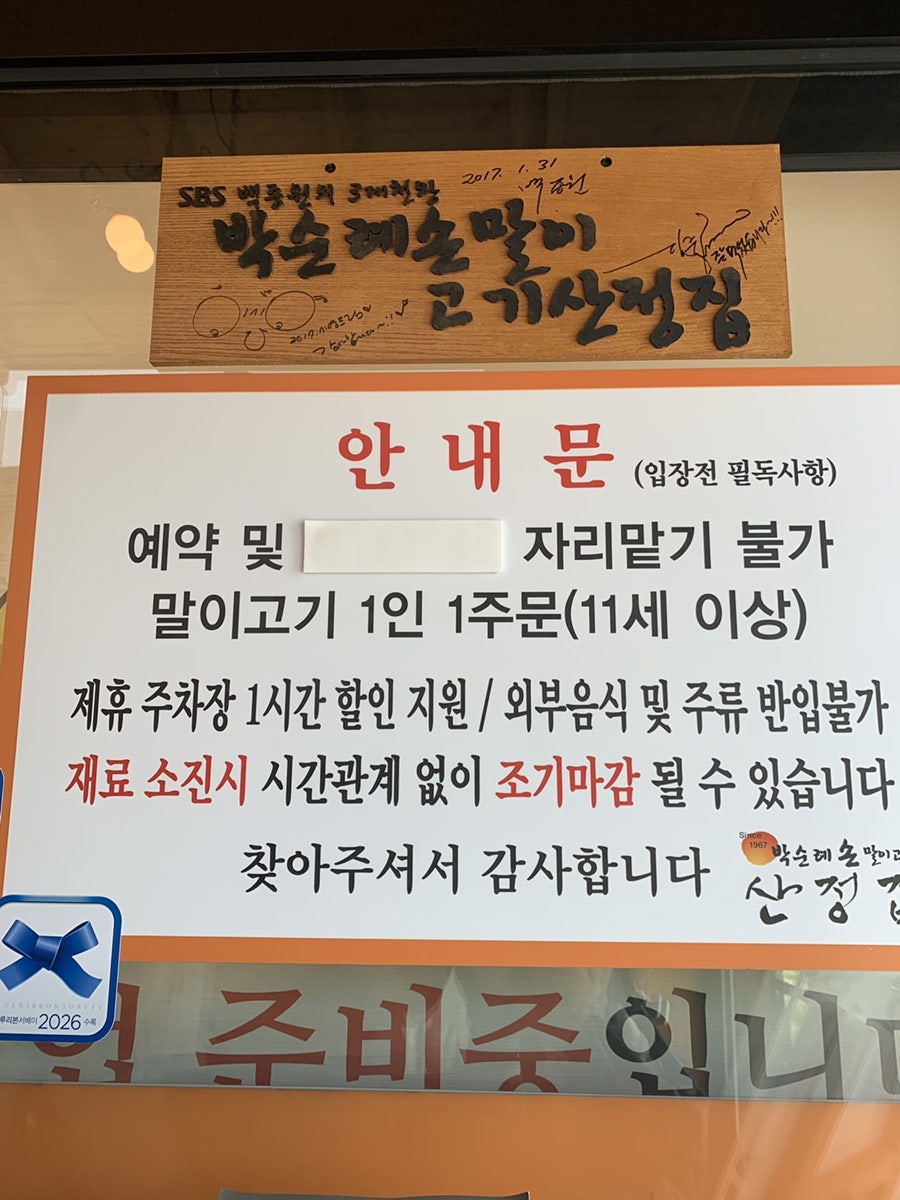 2017. 1. 31
SBS 백종원의 3대천왕
백종원
박순례손말이
고기산정집
안내문 (입장전 필독사항)
예약 및 자리맡기 불가
말이고기 1인 1주문(11세 이상)
제휴 주차장 1시간 할인 지원 / 외부음식 및 주류 반입불가
재료 소진시 시간관계 없이 조기마감 될 수 있습니다
찾아주셔서 감사합니다
Since
1967
박순례손말이고
산정집
블루리본서베이 2026 수록
준비중입니다